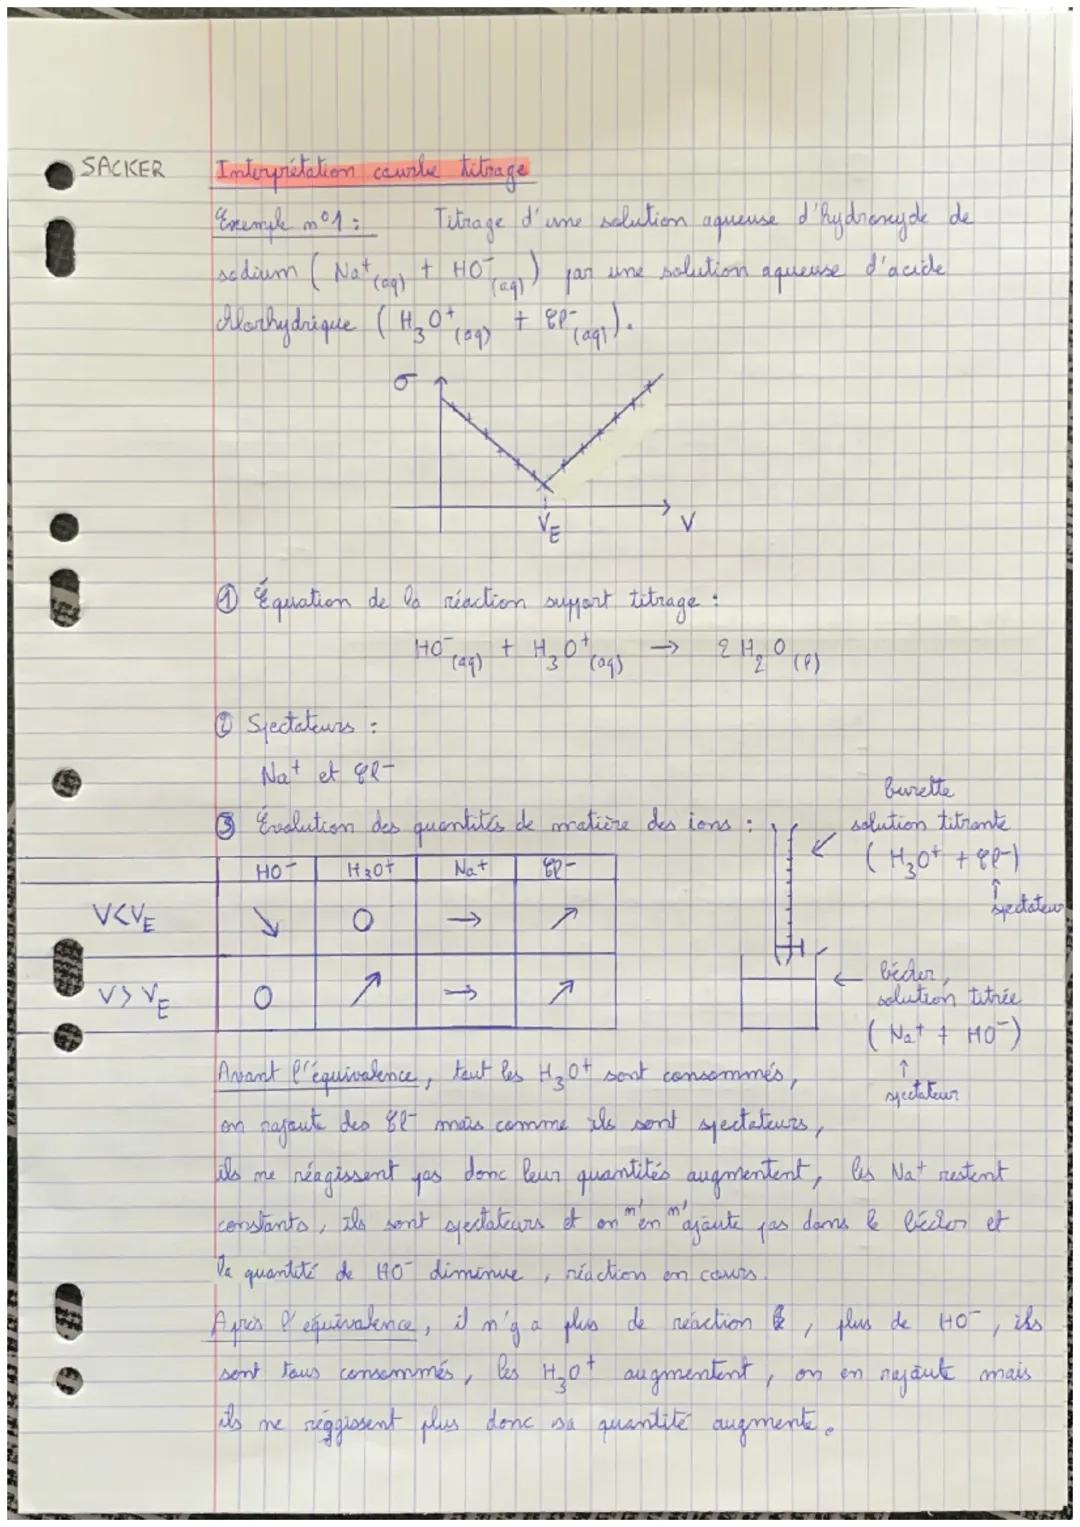 SACKER
Interprétation courbe titrage
Exemple n°1 : Titrage d'une solution aqueuse d'hydroxyde de
sodium ( Na⁺(aq) + HO⁻(aq) ) par une solution aqueuse d'acide
chlorhydrique ( H₃O⁺(aq) + Cl⁻(aq) ).
σ
V_E
V
① Équation de la réaction support titrage :
HO⁻(aq) + H₃O⁺(aq) → 2 H₂O(l)
② Spectateurs :
Na⁺ et Cl⁻
③ Évolution des quantités de matière des ions :
HO⁻ H₃O⁺ Na⁺ Cl⁻
V<V_E ↘ 0 → ↗
V > V_E 0 ↗ → ↗
burette
solution titrante
( H₃O⁺ + Cl⁻)
↑
spectateur
bécher,
solution titrée
( Na⁺ + HO⁻)
↑
spectateur
Avant l'équivalence, tout les H₃O⁺ sont consommés,
on rajoute des Cl⁻ mais comme ils sont spectateurs,
ils ne réagissent pas donc leur quantités augmentent, les Na⁺ restent
constants, ils sont spectateurs et on n'en n'ajoute pas dans le bécher et
la quantité de HO⁻ diminue, réaction en cours.
Après l'équivalence, il n'y a plus de réaction , plus de HO⁻, ils
sont tous consommés, les H₃O⁺ augmentent, on en rajoute mais
ils ne réagissent plus donc sa quantité augmente.